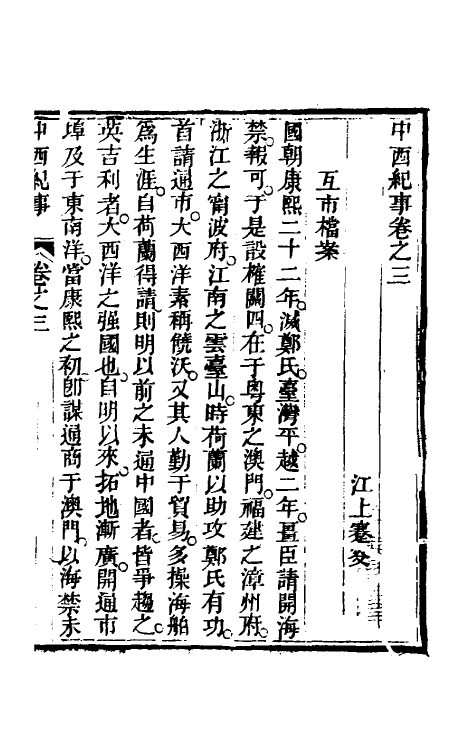 中西紀事卷之三
江上蹇叟
互市檔案
國朝康熙二十二年滅鄭氏臺灣平越二年疆臣請開海
禁報可于是設榷關四在于粵東之澳門福建之漳州府
浙江之甯波府江南之雲臺山時荷蘭以助攻鄭氏有功
首請通市大西洋素稱饒沃又其人勤于貿易多操海舶
爲生涯自荷蘭得請則明以前之未通中國者皆爭趨之
英吉利者大西洋之强國也自明以來拓地漸廣開通市
埠及于東南洋當康熙之初卽謀通商于澳門以海禁未
中西紀事
卷之三